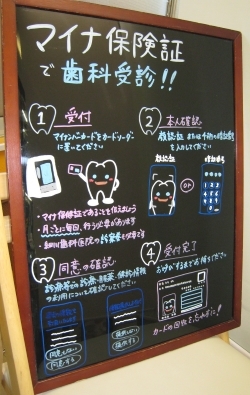 マイナ保険証
で歯科受診!!
1 受付
マイナンバーカードをカードリーダー
に置いてください
2 本人確認
顔認証 または 4桁の暗証番号
を入力してください
顔認証
or
暗証番号
・マイナ保険証であることを伝えましょう
・月ごとに毎回、行う必要があります
3 同意の確認
の利用について確認してください
同意しない
同意する
4 受付完了
お呼びするまでお待ちください
カードの回収を忘れずに!